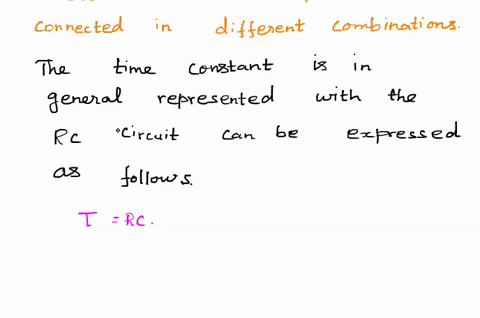 connected in different combinations.
The time constant is in
general represented with the
RC circuit can be expressed
as follows.
T = RC.